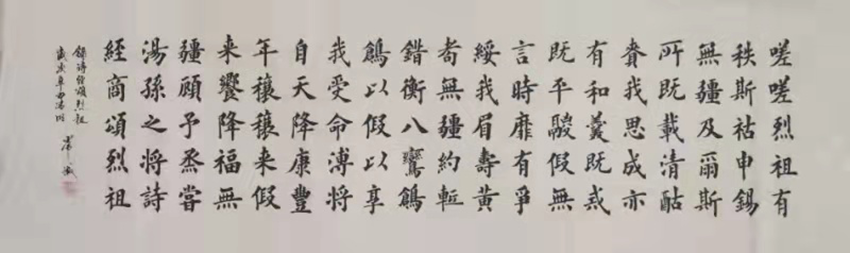 嗟嗟烈祖有
秩斯祜申錫
無疆及爾斯
所既載清酤
賚我思成亦
有和羹既戒
既平駿假無
言時靡有爭
綏我眉壽黃
耇無疆約軧
錯衡八鸞鶬
鶬以假以享
我受命溥將
自天降康豐
年穰穰来假
来饗降福無
疆顧予烝嘗
湯孫之將詩
經商頌烈祖
錄詩經頌烈祖